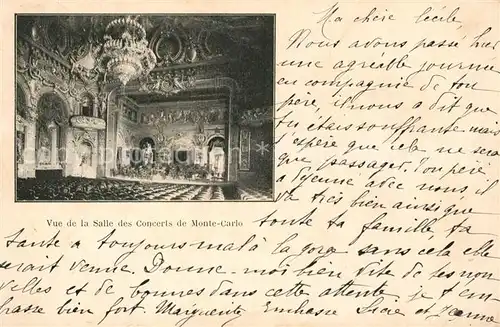 Ma chère Cécile,
Nous avons passé hier
une agréable journée
en compagnie de ton
père, il nous a dit que
tu étais souffrante mais
j'espère que cela ne sera
que passager. Ton père
a déjeuné avec nous il
va très bien ainsi que
toute ta famille ta
Vue de la Salle des Concerts de Monte-Carlo
tante a toujours mal à la gorge sans cela elle
serait venue. Donne-moi bien vite de tes nou
velles et de bonnes dans cette attente je t'em
brasse bien fort. Marguerite Embrasse et Jeanne